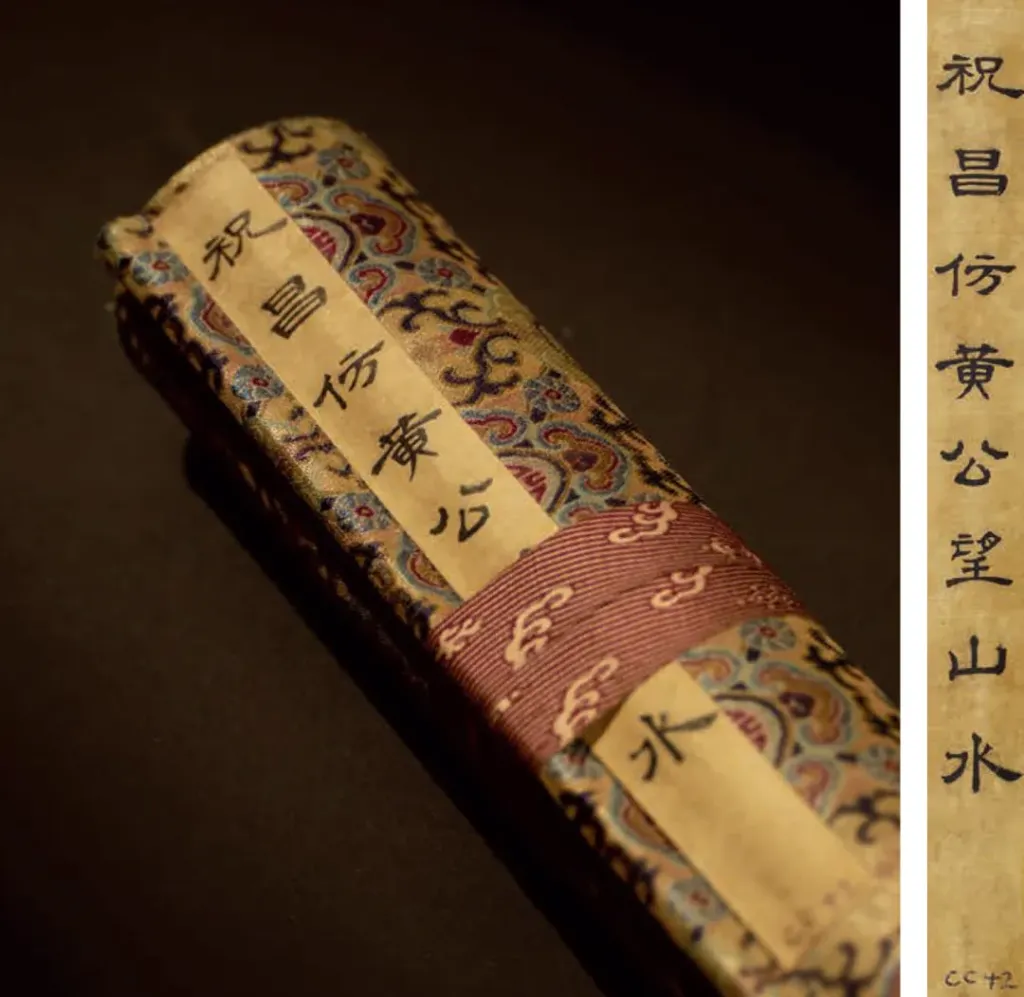 祝昌仿黄公
水
祝昌仿黄公望山水
CC42